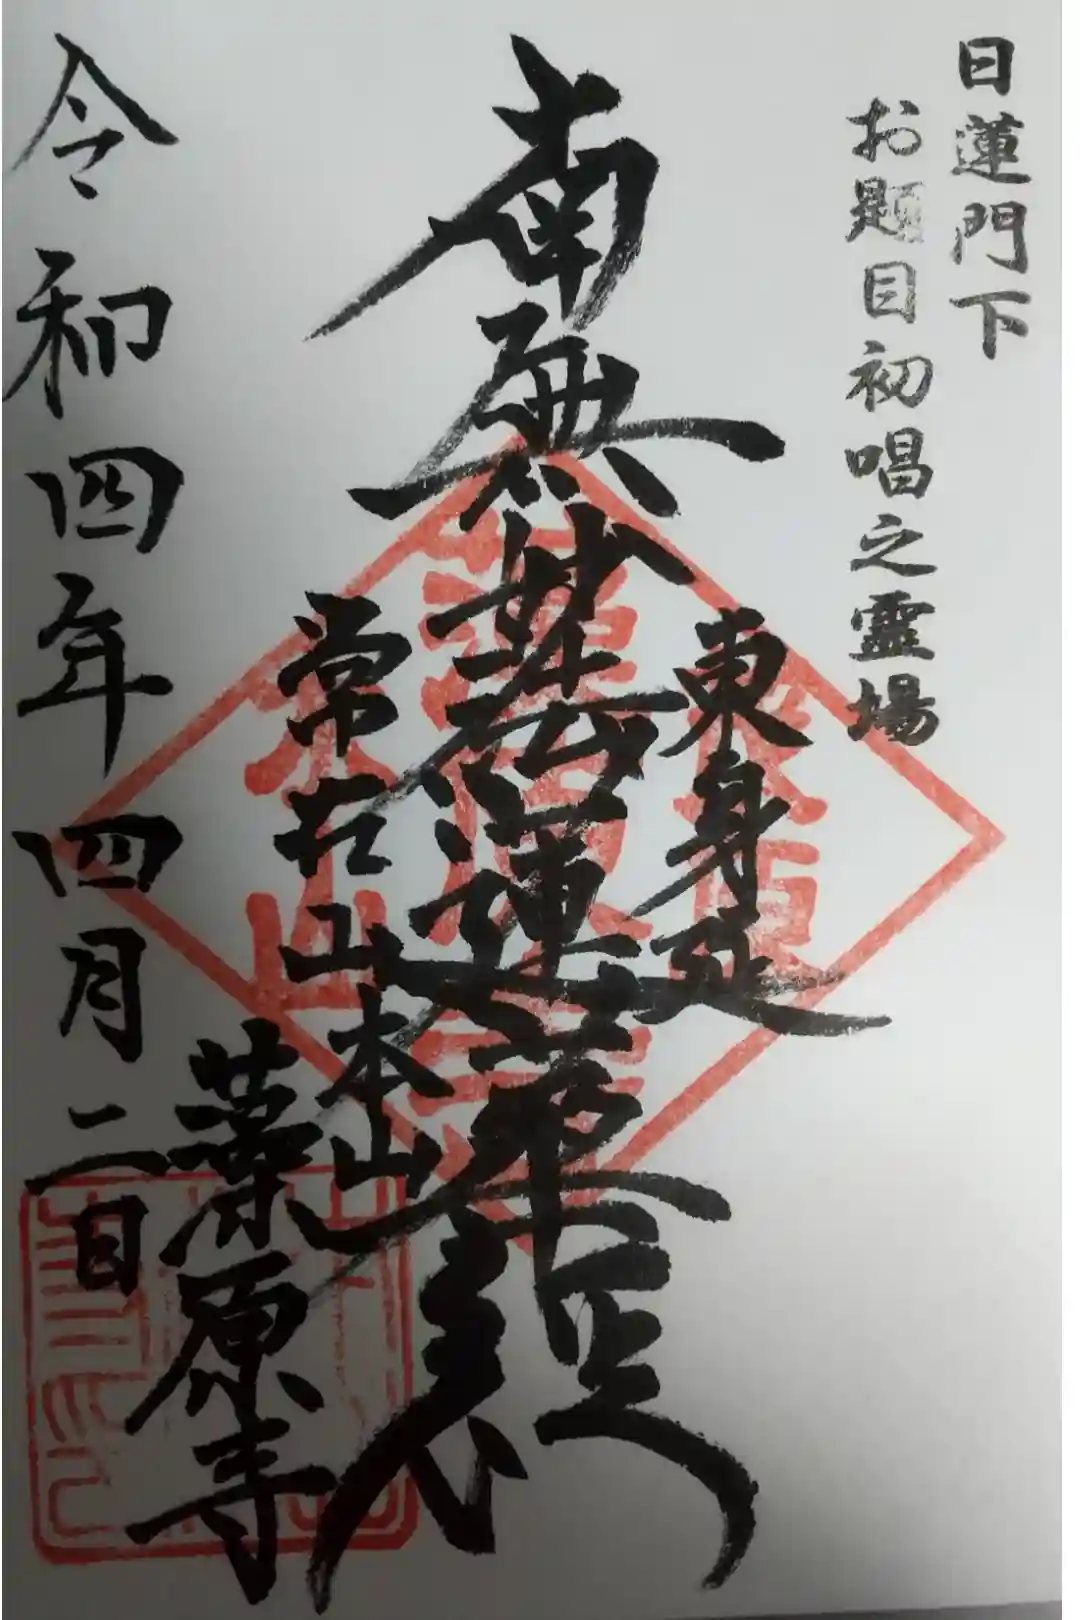 日蓮門下
お題目初唱之霊場
東身延
南無妙法蓮華経
常在山
本山
藻原寺
令和四年四月二日